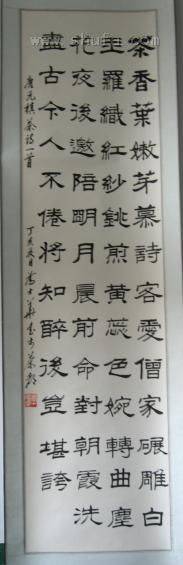 茶香葉嫩芽慕詩客愛僧家碾雕白
玉羅織紅紗銚煎黃蕊色婉轉曲塵
花夜後邀陪明月晨前命對朝霞洗
盡古今人不倦將知醉後豈堪誇
唐元稹茶詩一首
丁亥